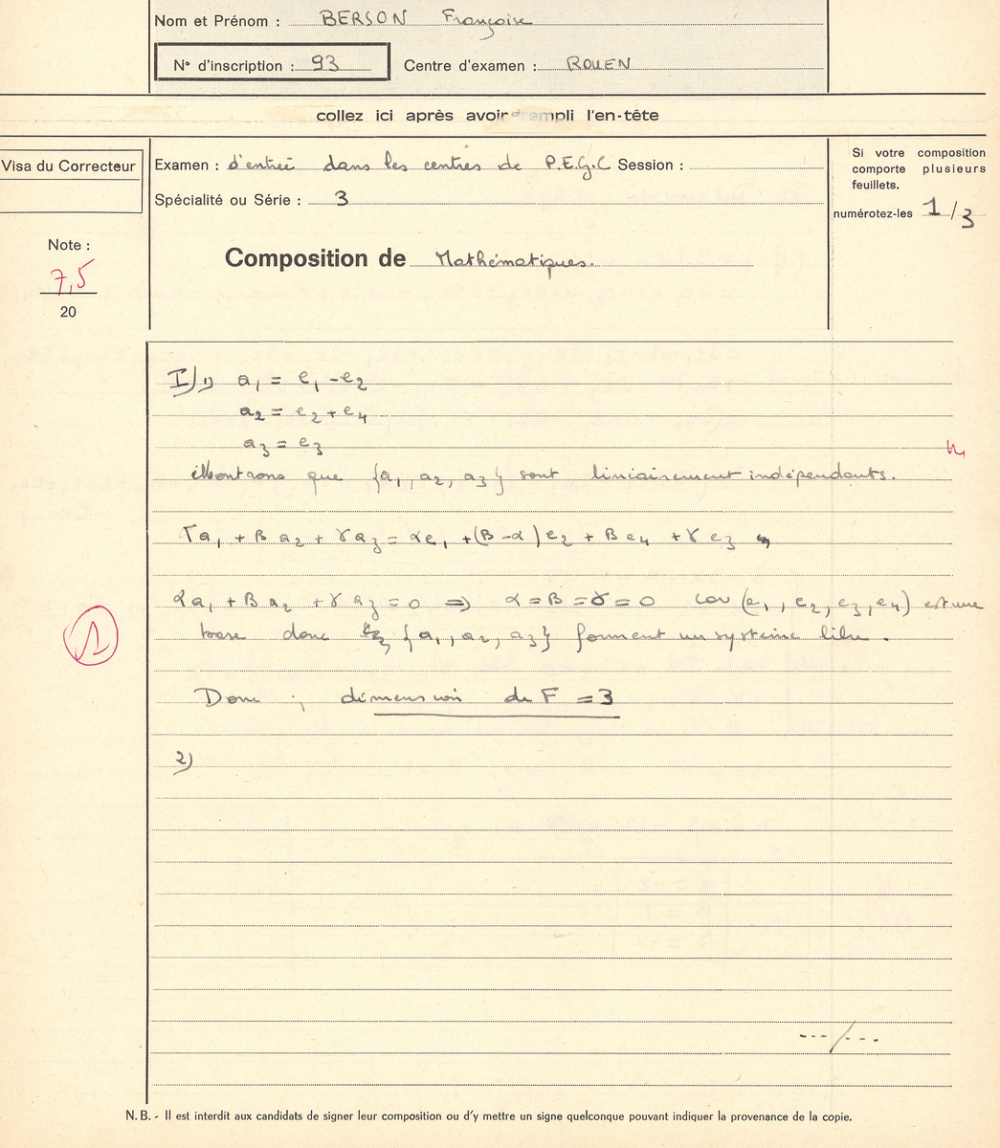 Nom et Prénom : BERSON Françoise
N° d'inscription : 93 Centre d'examen : ROUEN
collez ici après avoir empli l'en-tête
Visa du Correcteur
Examen : d'entrée dans les centres de P.E.G.C Session :
Spécialité ou Série : 3
Si votre composition
comporte plusieurs
feuillets.
numérotez-les 1/3
Note :
7,5
20
Composition de Mathématiques.
I/1) a₁ = e₁ - e₂
a₂ = e₂ + e₄
a₃ = e₃
Montrons que {a₁, a₂, a₃} sont linéairement indépendants.
a₁ + β a₂ + γ a₃ = αe₁ + (β - α) e₂ + β e₄ + γ e₃
αa₁ + β a₂ + γ a₃ = 0 ⇒ α = β = γ = 0 car (e₁, e₂, e₃, e₄) est une
base donc {a₁, a₂, a₃} forment un système libre.
1
Donc ; dimension de F = 3
2)
---/---
N. B. - Il est interdit aux candidats de signer leur composition ou d'y mettre un signe quelconque pouvant indiquer la provenance de la copie.